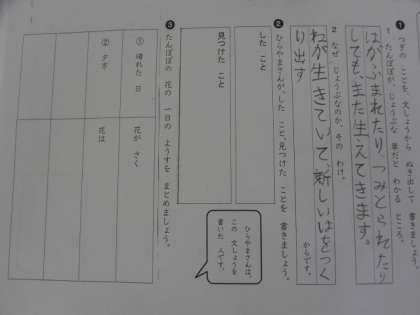 ❶ つぎの ことを、文しょうから ぬき出して 書きましょう。
1 たんぽぽが、じょうぶな 草だと わかる ところ。
はがふまれたり、つみとられたり
しても、また生えてきます。
2 なぜ じょうぶなのか、その わけ。
ねが生きていて、新しいはをつく
り出す
からです。
❷ ひらやまさんが、した こと、見つけた ことを 書きましょう。
した こと
見つけた こと
ひらやまさんは、
この 文しょうを
書いた 人です。
❸ たんぽぽの 花の 一日の ようすを まとめましょう。
① 晴れた 日
花が さく
② 夕方
花は